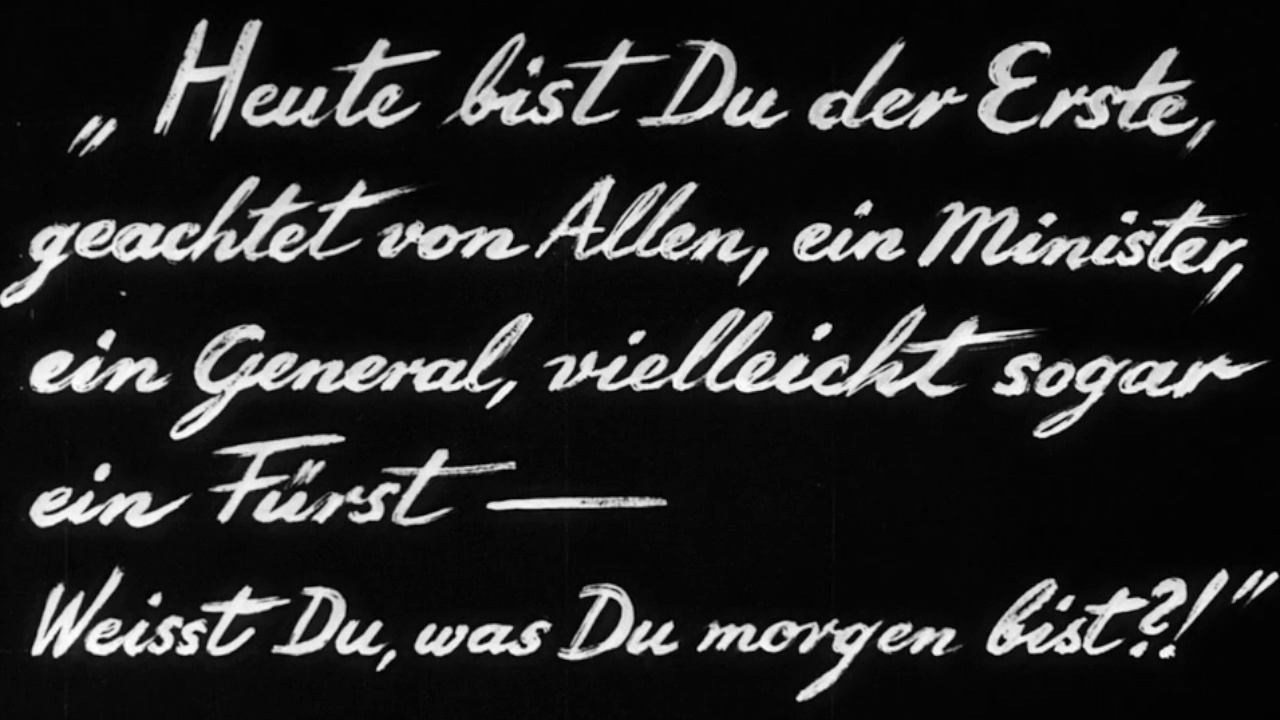 „Heute bist Du der Erste,
geachtet von Allen, ein Minister,
ein General, vielleicht sogar
ein Fürst —
Weisst Du, was Du morgen bist?!"